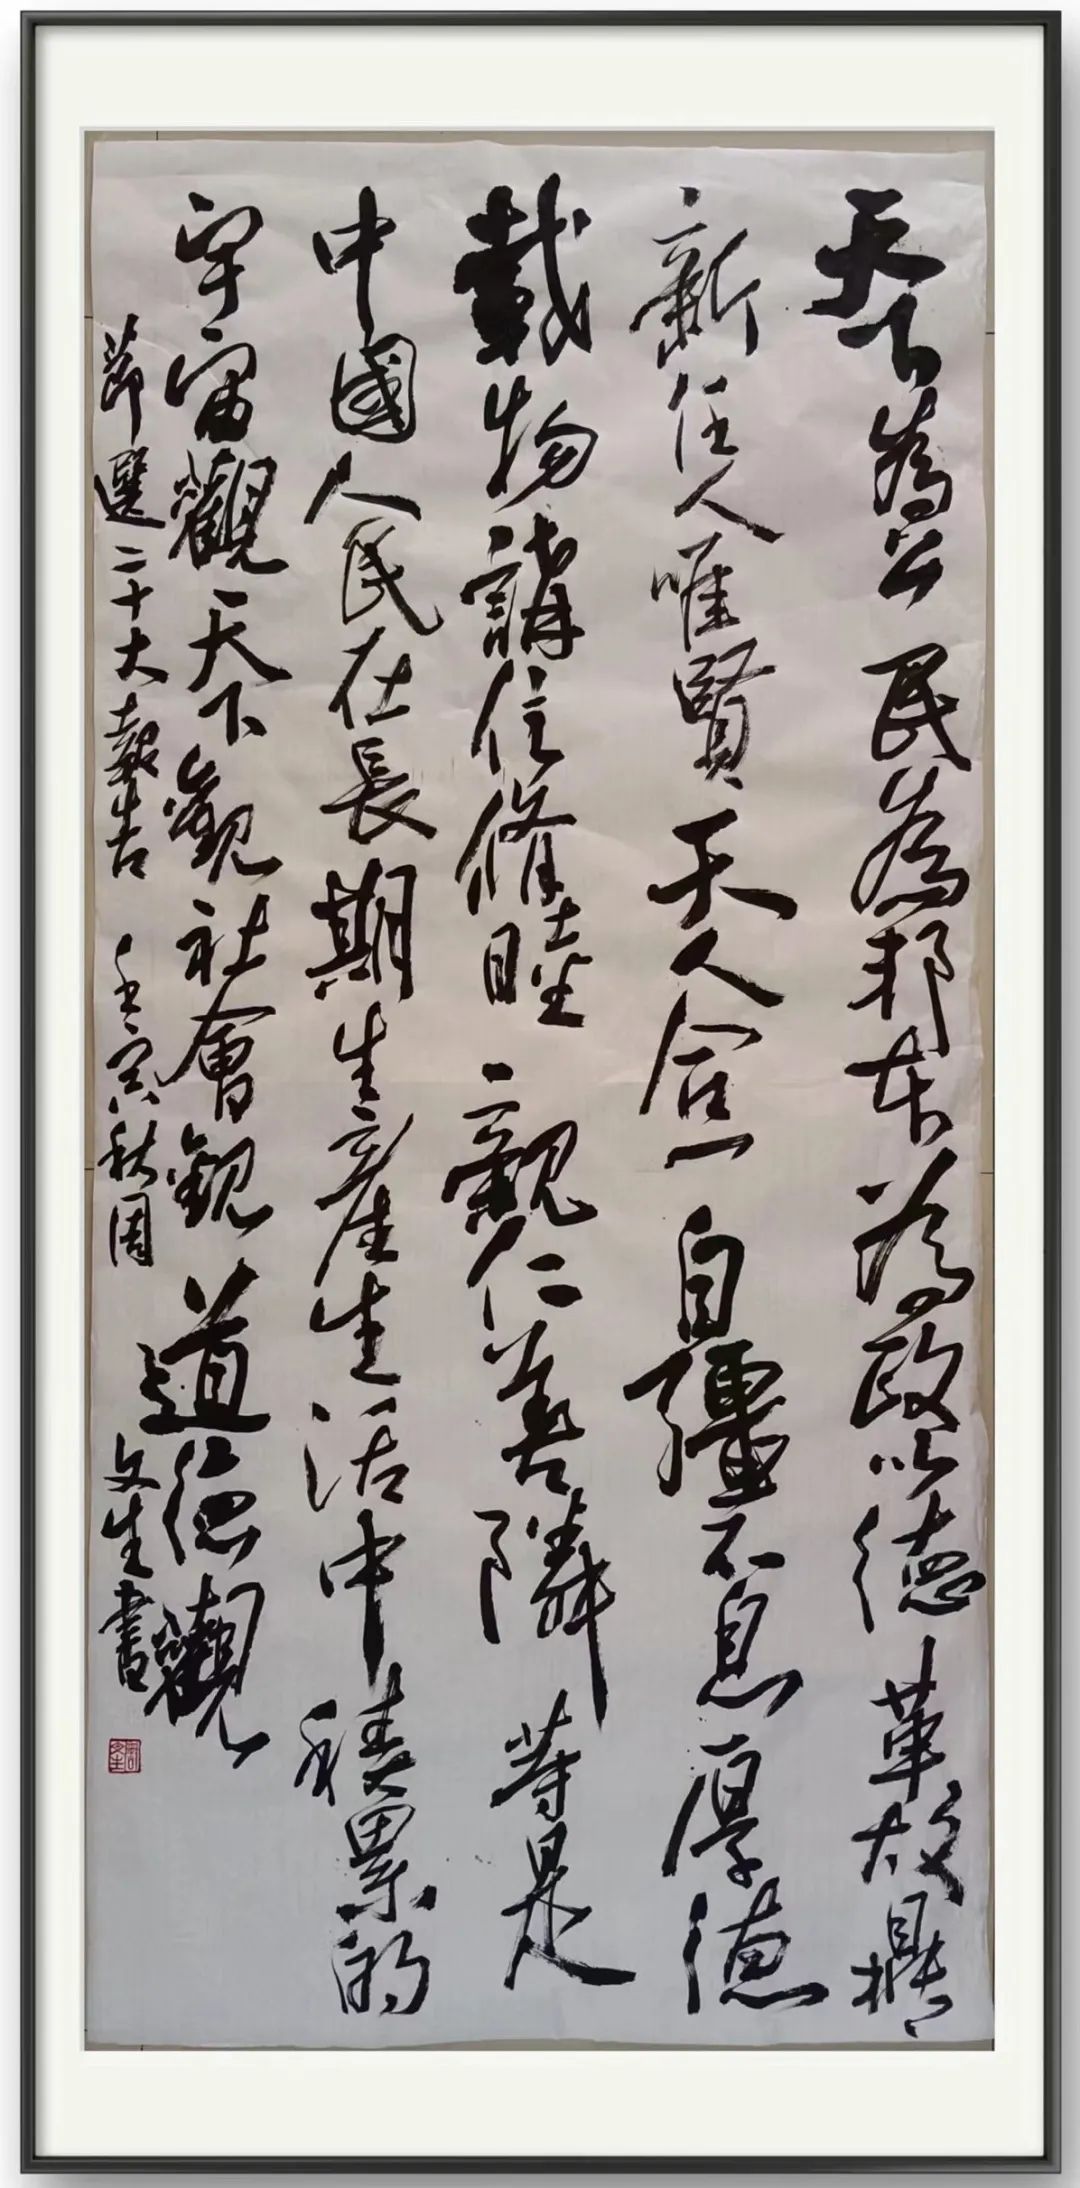 天下為公民為邦本為政以德革故鼎
新任人唯賢天人合一自彊不息厚德
載物講信修睦親仁善隣等是
中國人民在長期生產生活中積累的
宇宙觀天下觀社會觀道德觀
節選二十大報告 壬寅秋周文生書
周文生